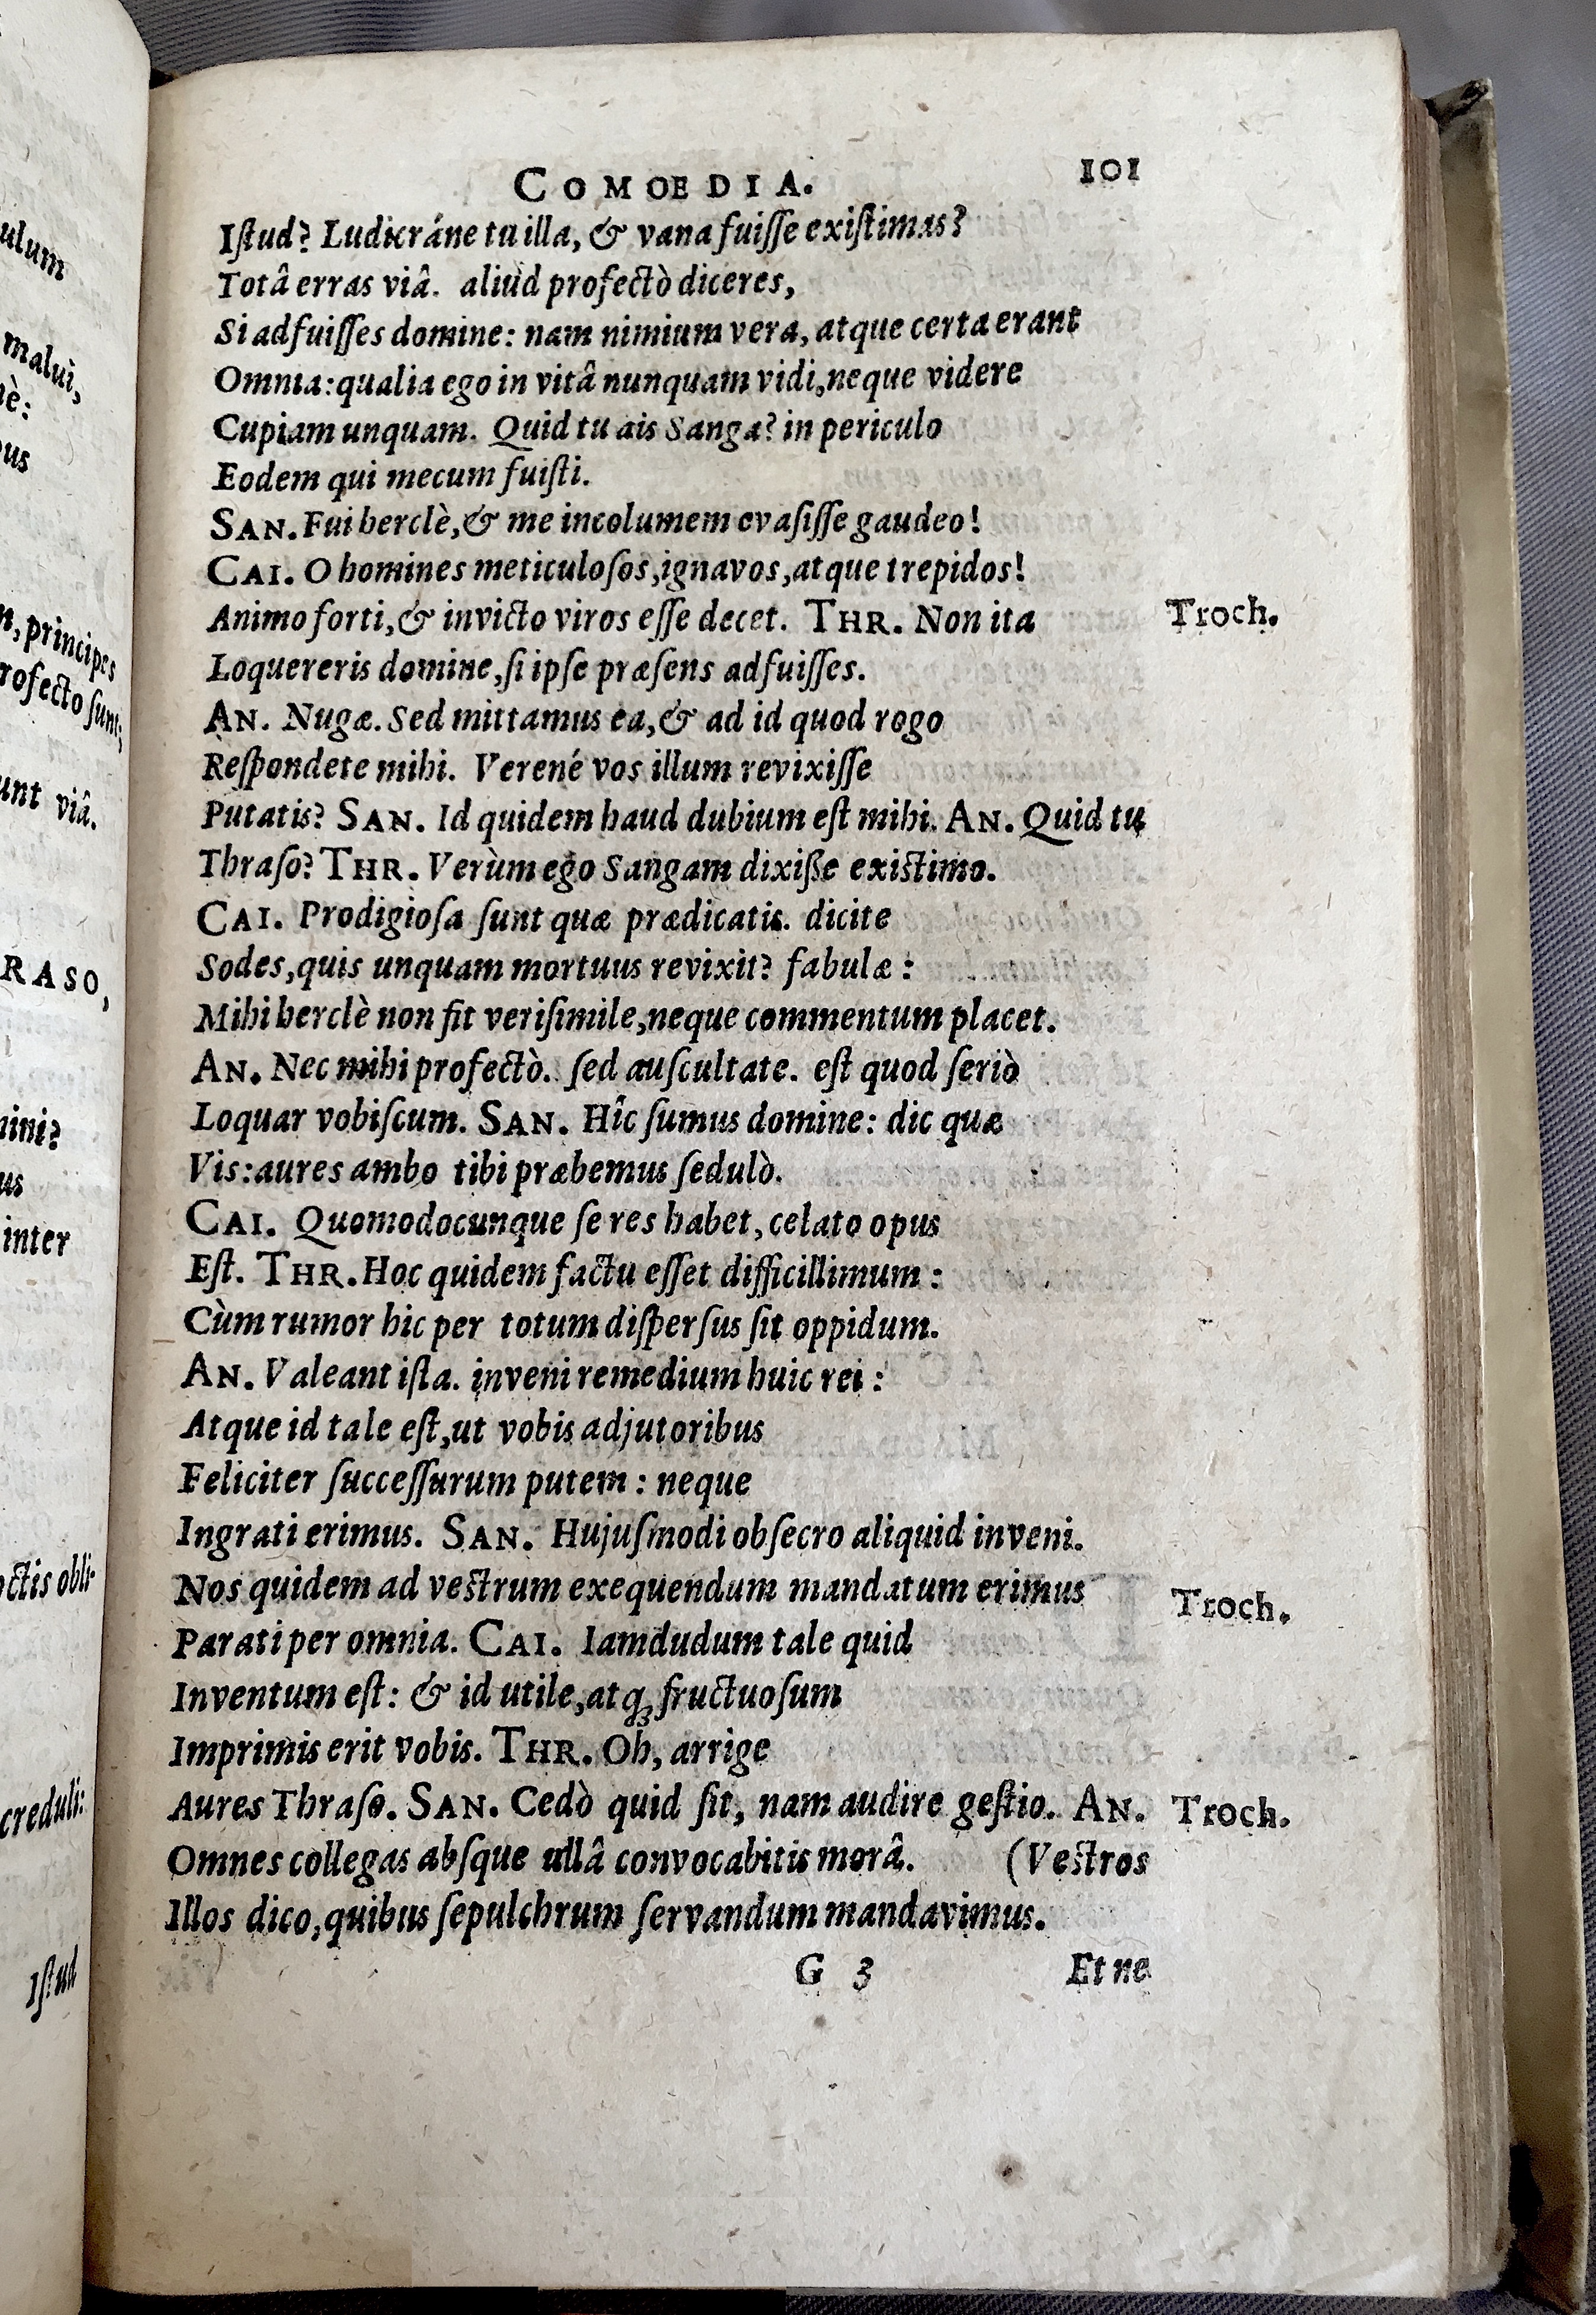 ulum
malui,
nè:
ous
n, principes
rofecto sunt;
unt viâ.
RASO,
nini?
us
inter
octis obli-
creduli:
Istud
COMOEDIA. 101
Iſtud? Ludicráne tu illa, & vana fuiſſe exiſtimas?
Totâ erras viâ. aliud profectò diceres,
Si adfuiſſes domine: nam nimium vera, atque certa erant
Omnia: qualia ego in vitâ nunquam vidi, neque videre
Cupiam unquam. Quid tu ais Sanga? in periculo
Eodem qui mecum fuiſti.
SAN. Fui herclè, & me incolumem evaſiſſe gaudeo!
CAI. O homines meticuloſos, ignavos, atque trepidos!
Animo forti, & invicto viros eſſe decet. THR. Non ita Troch.
Loquereris domine, ſi ipſe præſens adfuiſſes.
AN. Nugæ. Sed mittamus ea, & ad id quod rogo
Reſpondete mihi. Verené vos illum revixiſſe
Putatis? SAN. Id quidem haud dubium eſt mihi. AN. Quid tu
Thraſo? THR. Verùm ego Sangam dixiße exiſtimo.
CAI. Prodigioſa ſunt quæ prædicatis. dicite
Sodes, quis unquam mortuus revixit? fabulæ:
Mihi herclè non fit veriſimile, neque commentum placet.
AN. Nec mihi profectò. ſed auſcultate. eſt quod ſeriò
Loquar vobiſcum. SAN. Hîc ſumus domine: dic quæ
Vis: aures ambo tibi præbemus ſedulò.
CAI. Quomodocunque ſe res habet, celato opus
Eſt. THR. Hoc quidem factu eſſet difficillimum:
Cùm rumor hic per totum diſperſus ſit oppidum.
AN. Valeant iſta. inveni remedium huic rei:
Atque id tale eſt, ut vobis adjutoribus
Feliciter ſucceſſurum putem: neque
Ingrati erimus. SAN. Hujuſmodi obſecro aliquid inveni.
Nos quidem ad veſtrum exequendum mandatum erimus Troch.
Parati per omnia. CAI. Iamdudum tale quid
Inventum eſt: & id utile, atq; fructuoſum
Imprimis erit vobis. THR. Oh, arrige
Aures Thraſo. SAN. Cedò quid ſit, nam audire geſtio. AN. Troch.
Omnes collegas abſque ullâ convocabitis morâ. (Veſtros
Illos dico, quibus ſepulchrum ſervandum mandavimus.
G 3 Et ne